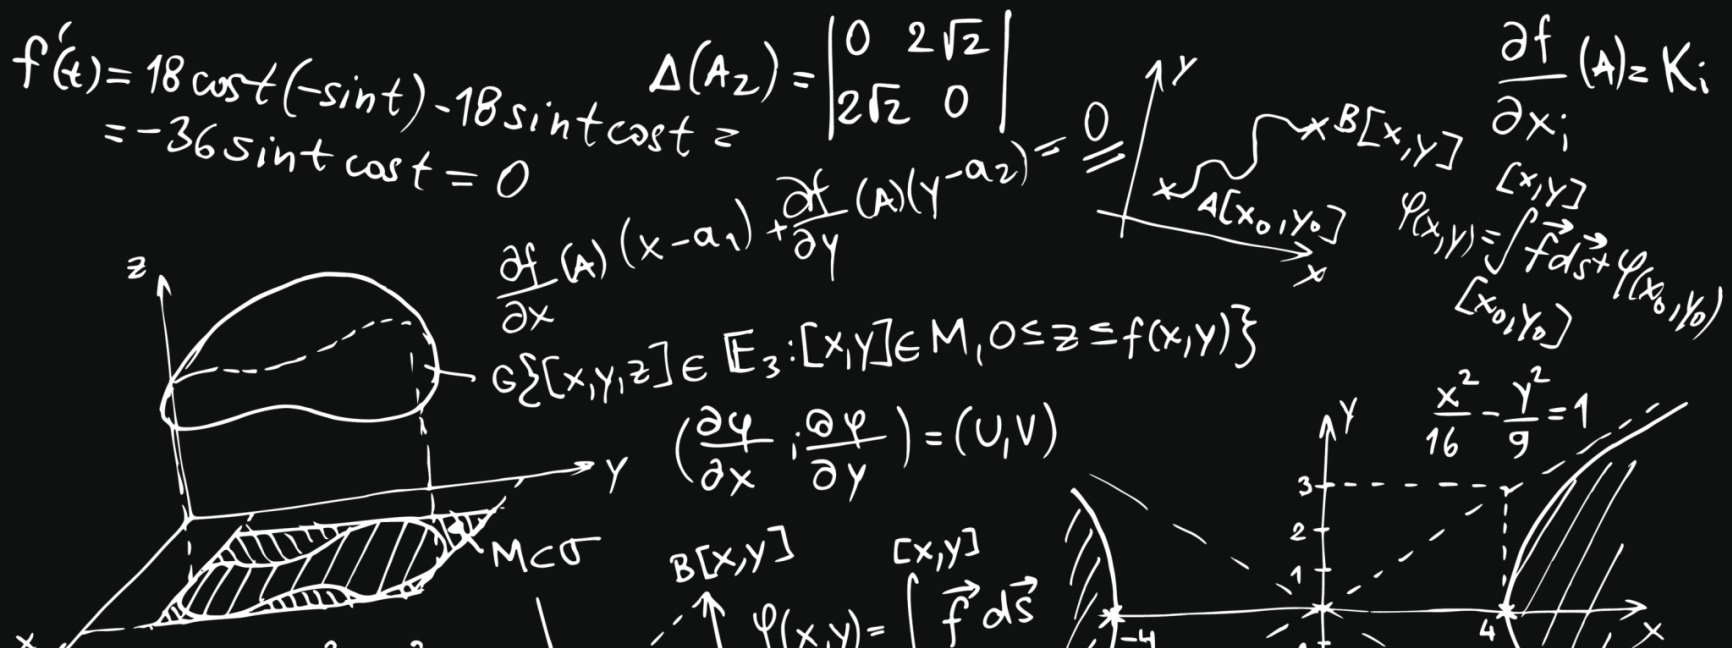 f'(t) = 18 cos t (-sin t) - 18 sin t cos t =
= -36 sin t cos t = 0
Δ(A2) = | 0 2√2 |
| 2√2 0 |
∂f/∂x (A) (x - a1) + ∂f/∂y (A)(y - a2) = 0
Y
B[x,y]
A[x0,y0]
x
∂f/∂xi (A) = Ki
[x,y]
φ(x,y) = ∫ f⃗ ds⃗ + φ(x0,y0)
[x0,y0]
z
Y
x
G{[x,y,z] ∈ E3 : [x,y] ∈ M, 0 ≤ z ≤ f(x,y)}
(∂φ/∂x ; ∂φ/∂y) = (U,V)
M⊂σ
B[x,y]
[x,y]
φ(x,y) = ∫ f⃗ ds⃗
x²/16 - y²/9 = 1
Y
3
2
1
-4
4
x